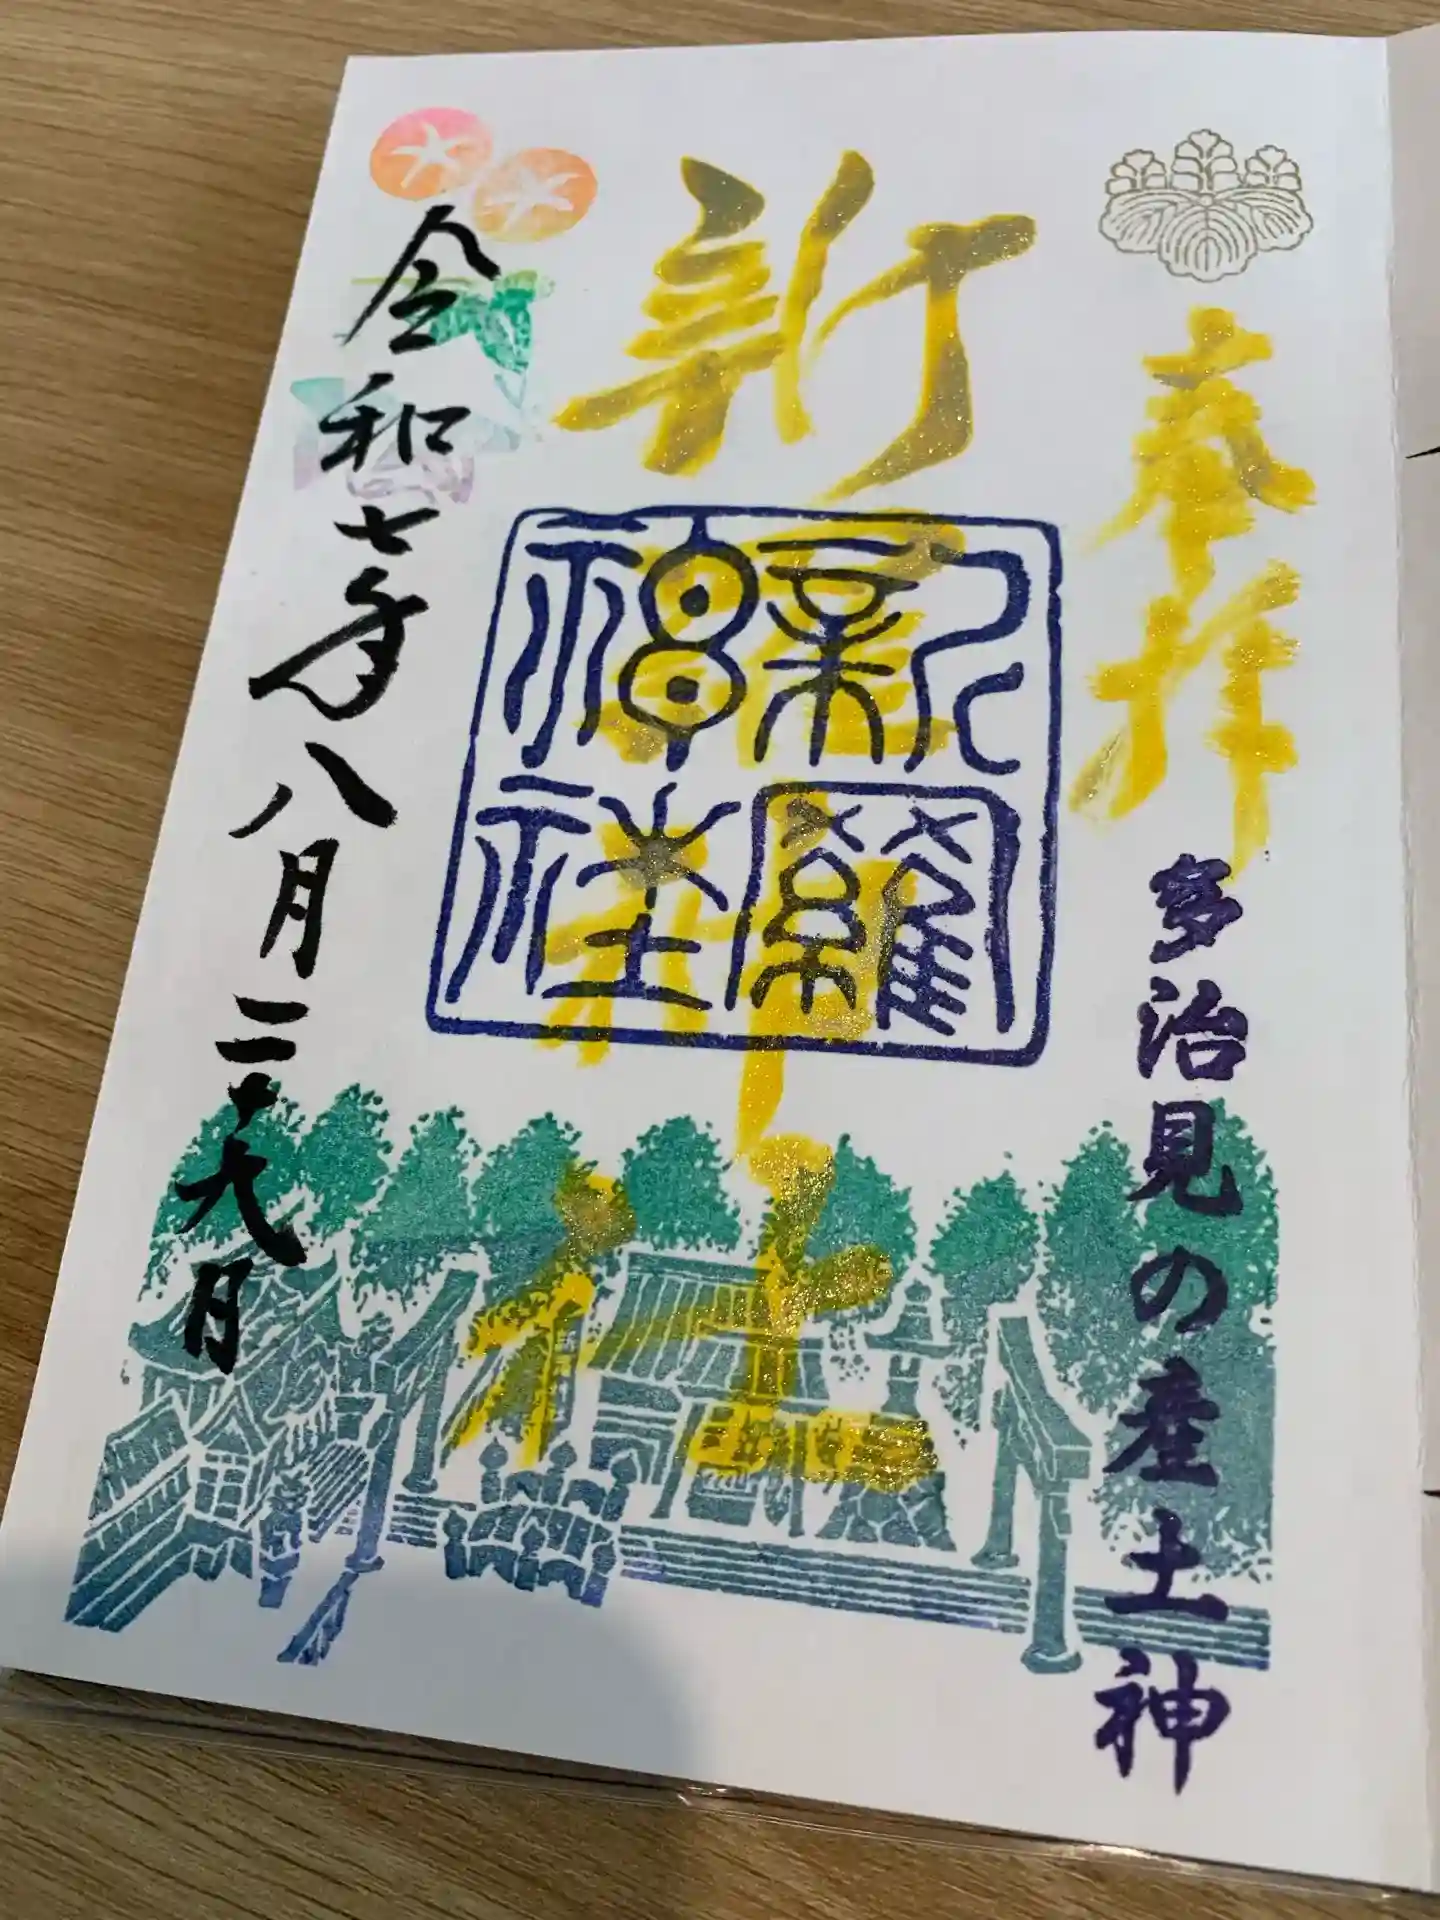 奉拝
多治見の産土神
新羅神社
新羅神社
令和七年八月二十九日